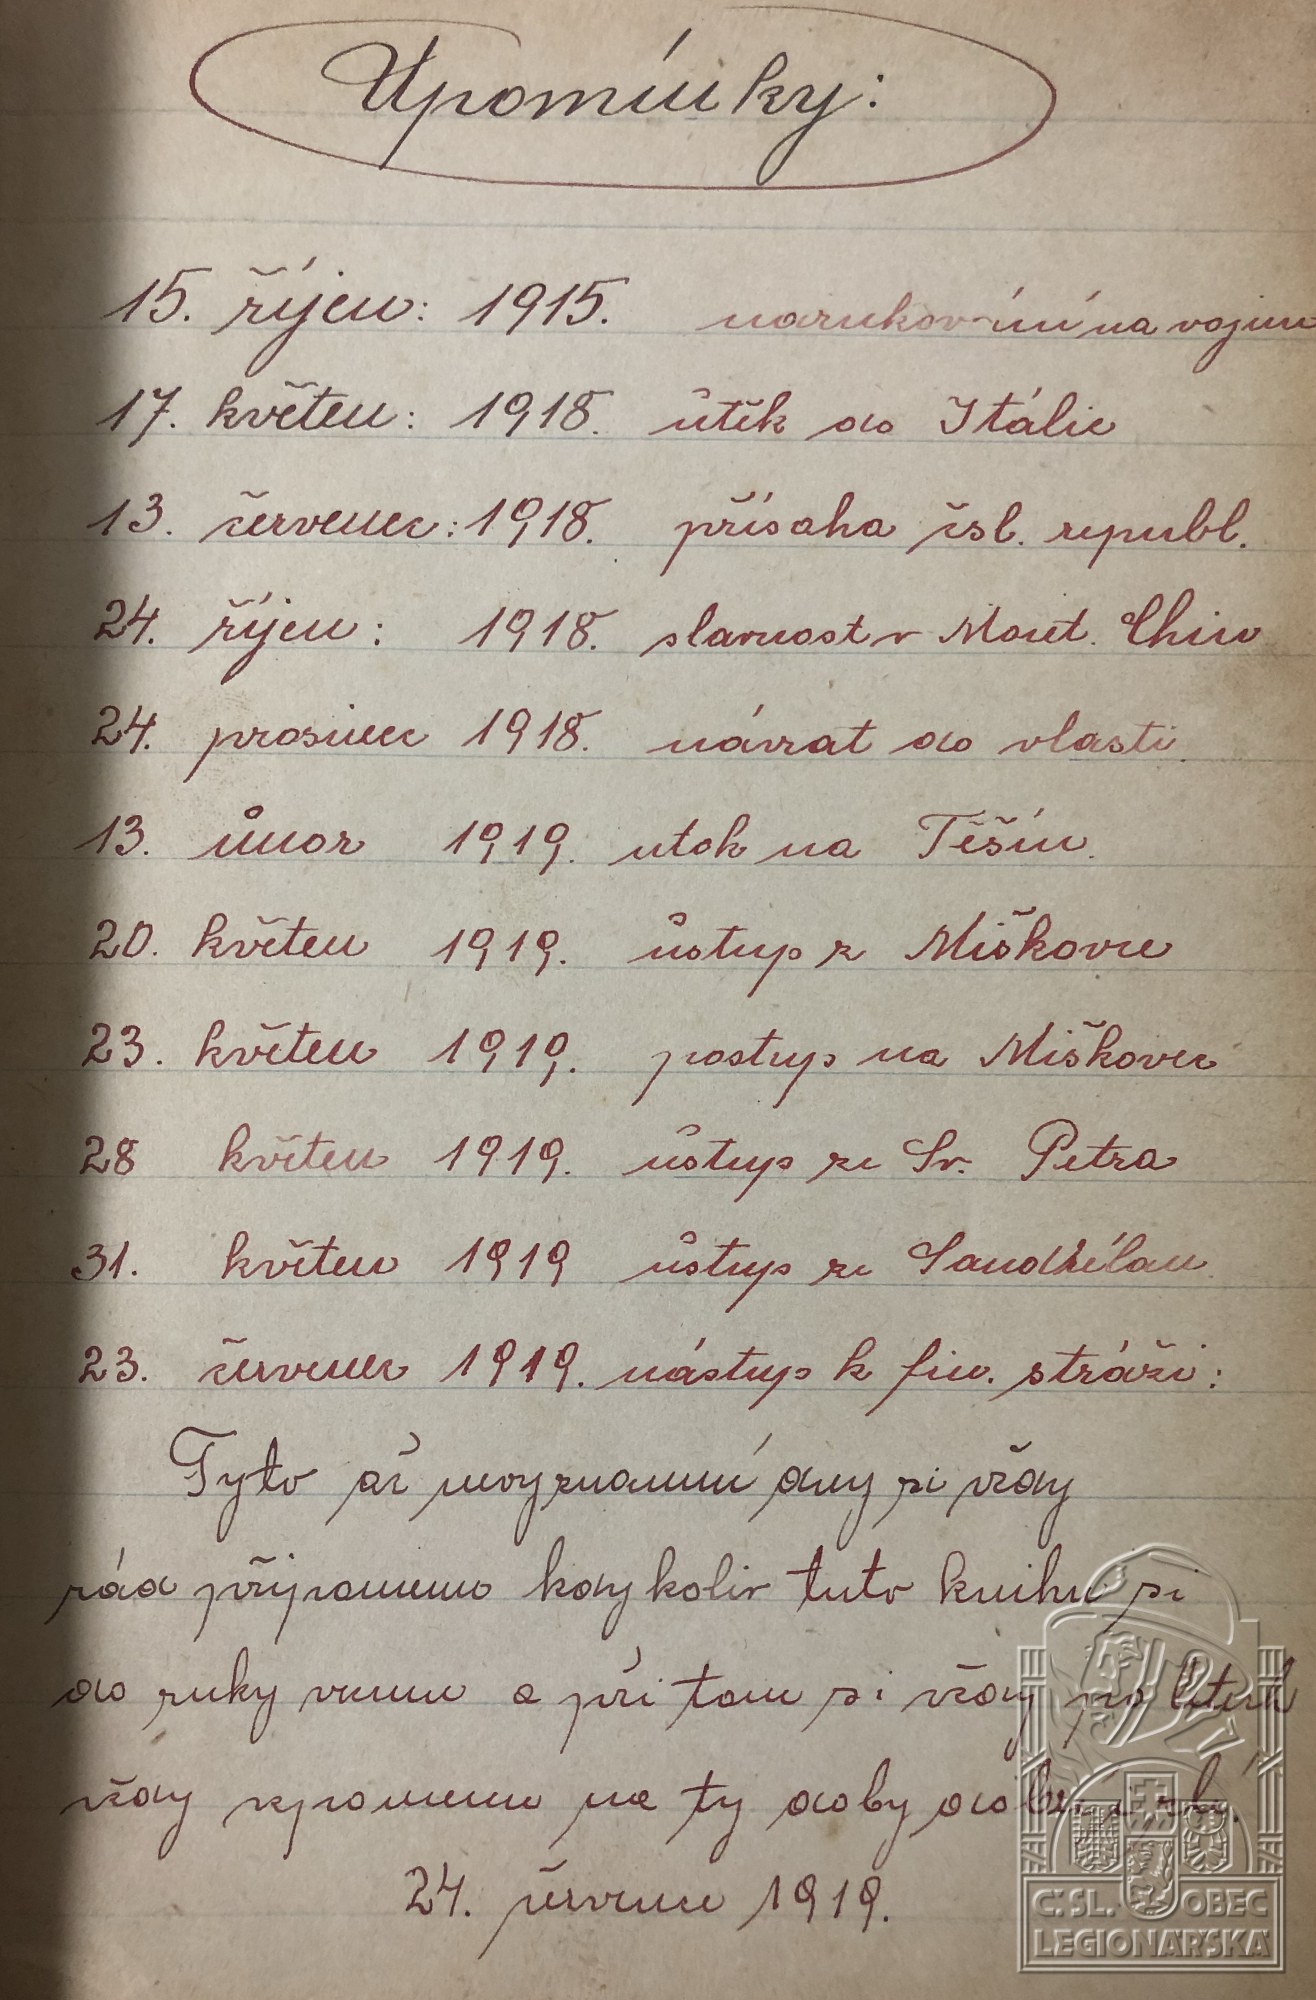 Upomínky:
15. říjen: 1915. narukování na vojnu
17. květen: 1918. ůtěk do Itálie
13. červenec: 1918. přísaha čsl. republ.
24. říjen: 1918. slavnost v Mont. Chiro
24. prosinec 1918. návrat do vlasti.
13. ůnor 1919. utok na Těšín.
20. květen 1919. ůstup z Miškovce
23. květen 1919. postup na Miškovec
28 květen 1919. ůstup ze Sv. Petra
31. květen 1919 ůstup ze
23. červenec 1919. nástup k fin. stráži:
Tyto ač nevyznamní dny si vždy
rád připomenu kdykoliv tuto knihu si
do ruky vemu a při tom si vždy po letech
vždy vzpomenu na ty doby dobré i zlé.
24. červenec 1919.
Č.SL. OBEC
LEGIONÁŘSKÁ